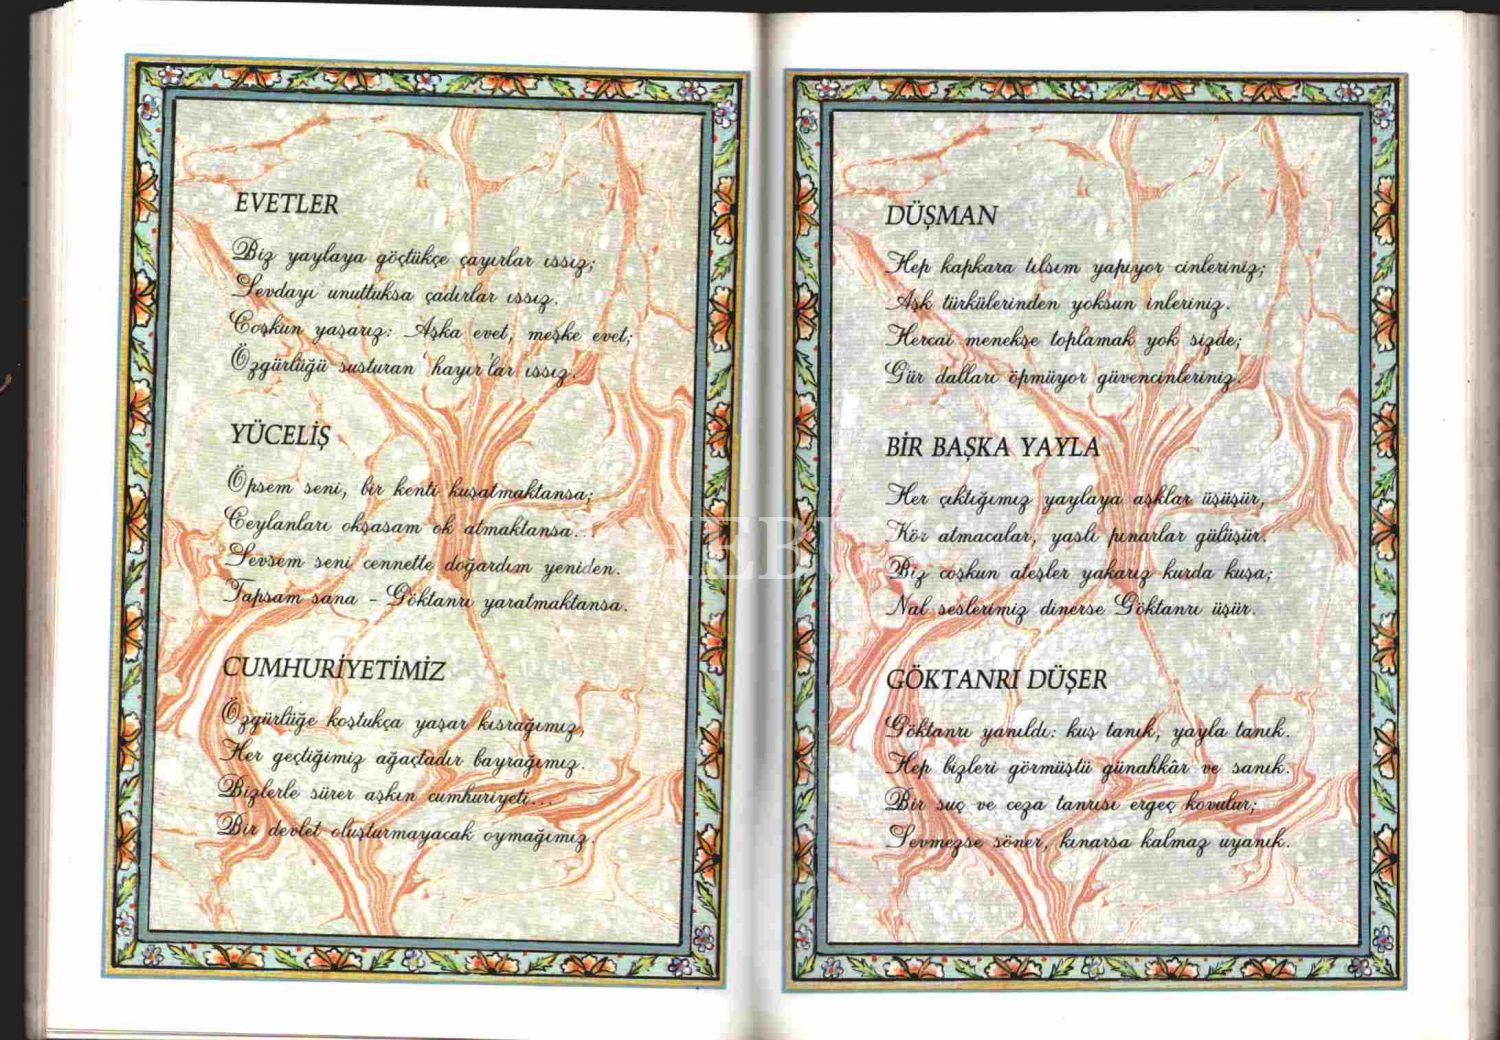 EVETLER
Biz yaylaya göçtükçe çayırlar ıssız;
Sevdayı unuttuksa çadırlar ıssız.
Coşkun yaşarız: Aşka evet, meşke evet;
Özgürlüğü susturan 'hayır'lar ıssız.
YÜCELİŞ
Öpsem seni, bir kenti kuşatmaktansa;
Ceylanları okşasam ok atmaktansa...
Sevsem seni cennette doğardım yeniden.
Tapsam sana - Göktanrı yaratmaktansa.
CUMHURİYETİMİZ
Özgürlüğe koştukça yaşar kısrağımız,
Her geçtiğimiz ağaçtadır bayrağımız.
Bizlerle sürer aşkın cumhuriyeti...
Bir devlet oluşturmayacak oymağımız.
DÜŞMAN
Hep kapkara tılsım yapıyor cinleriniz;
Aşk türkülerinden yoksun inleriniz.
Hercai menekşe toplamak yok sizde;
Gür dalları öpmüyor güvencinleriniz.
BİR BAŞKA YAYLA
Her çıktığımız yaylaya aşklar üşüşür,
Kör atmacalar, yaslı pınarlar gülüşür.
Biz coşkun ateşler yakarız kurda kuşa;
Nal seslerimiz dinerse Göktanrı üşür.
GÖKTANRI DÜŞER
Göktanrı yanıldı: kuş tanık, yayla tanık.
Hep bizleri görmüştü günahkâr ve sanık.
Bir suç ve ceza tanrısı ergeç kovulur;
Sevmezse söner, kınarsa kalmaz uyanık.